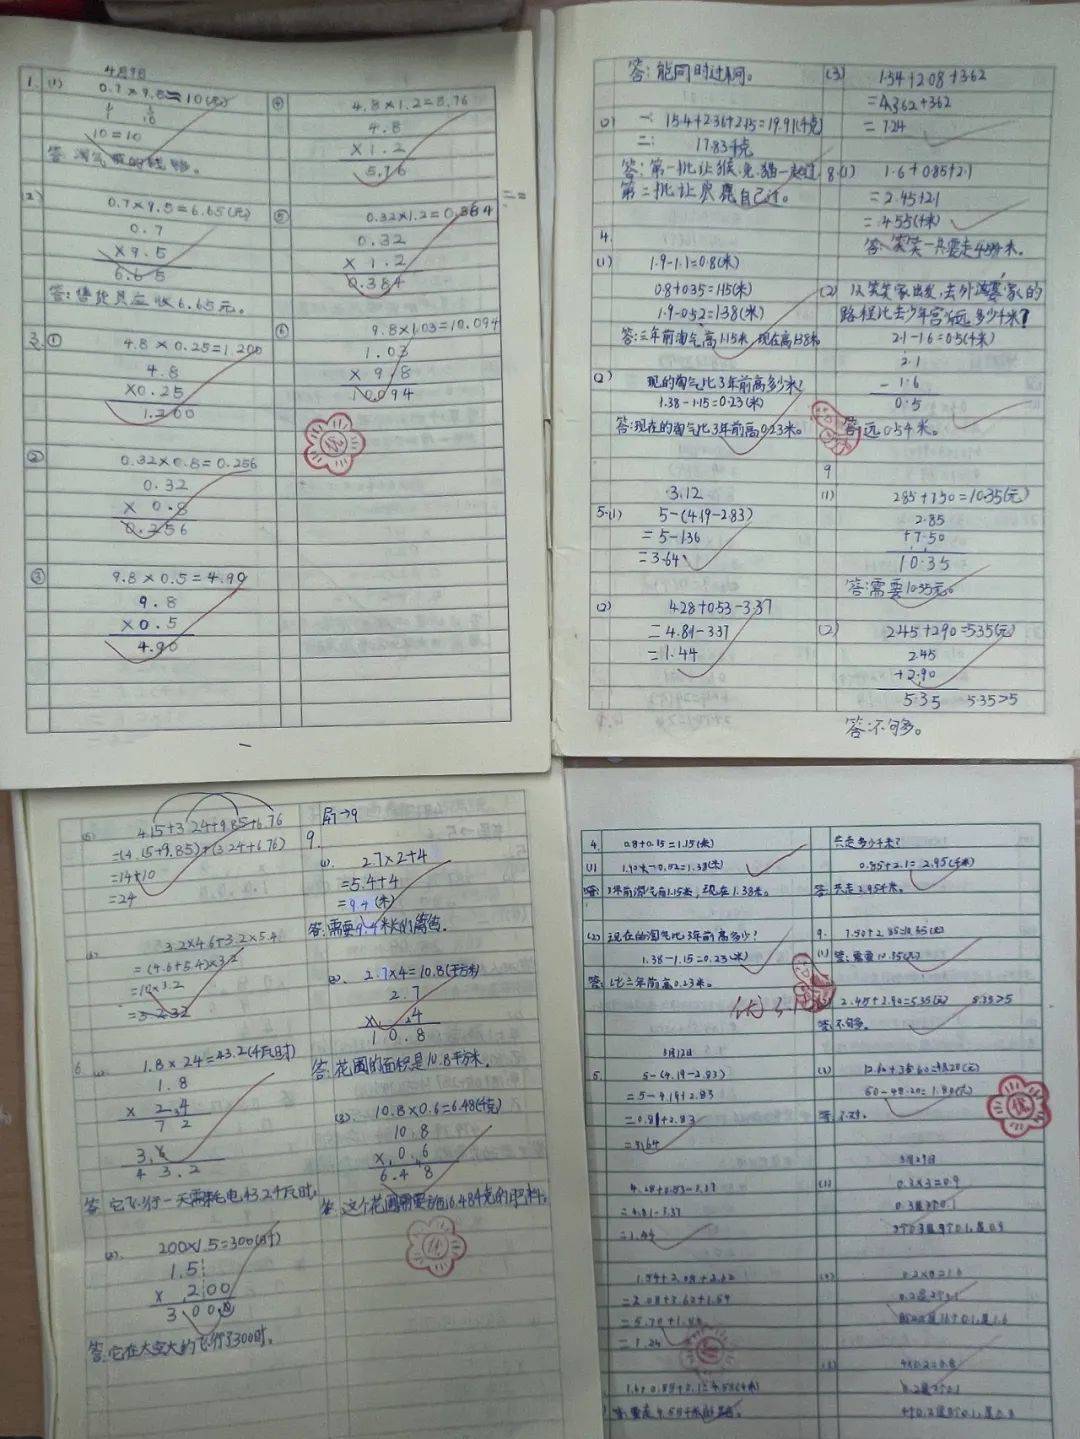 4月9日
1. (1) 0.7×9.8≈10(元)
10=10
答:淘气带的钱够。
(2) 0.7×9.5=6.65(元)
0.7
×9.5
6.65
答:售货员应收6.65元。
3. ① 4.8×0.25=1.200
4.8
×0.25
1.200
② 0.32×0.8=0.256
0.32
× 0.8
0.256
③ 9.8×0.5=4.90
9.8
×0.5
4.90
④ 4.8×1.2=5.76
4.8
×1.2
5.76
⑤ 0.32×1.2=0.384
0.32
× 1.2
0.384
⑥ 9.8×1.03=10.094
1.03
× 9.8
10.094
优
答:能同时过河。
15.4+2.36+2.15=19.91(千克)
二: 17.83千克
答:第一批让猴、兔、猫一起过
第二批让
自己过。
4.
(1) 1.9-1.1=0.8(米)
0.8+0.35=1.15(米)
1.9-0.52=1.38(米)
答:三年前淘气高1.15米,现在高1.38米
(2) 现的淘气比3年前高多少米?
1.38-1.15=0.23(米)
答:现在的淘气比3年前高0.23米。
3.12
5.(1) 5-(4.19-2.83)
=5-1.36
=3.64
(2) 4.28+0.53-3.37
=4.81-3.37
=1.44
(3) 1.54+2.08+3.62
=4.362+3.62
=7.24
8.(1) 1.6+0.85+2.1
=2.45+2.1
=4.55(千米)
答:笑笑一共要走4.55千米。
(2) 从笑笑家出发,去外婆家的
路程比去少年宫远多少千米?
2.1-1.6=0.5(千米)
2.1
-1.6
0.5
答:远0.5千米。
9
(1) 2.85+7.50=10.35(元)
2.85
+7.50
10.35
答:需要10.35元。
(2) 2.45+2.90=5.35(元)
2.45
+2.90
5.35 5.35>5
答:不够。
4.15+3.24+9.85+6.76
=(4.15+9.85)+(3.24+6.76)
=14+10
=24
3.2×4.6+3.2×5.4
=(4.6+5.4)×3.2
=10×3.2
6 1.8×24=43.2(千瓦时)
1.8
× 2.4
7 2
3.6
4 3.2
答:它飞行一天需耗电43.2千瓦时。
(2). 200×1.5=300(时)
1.5
× 200
300.0
9.
(1). 2.7×2+4
=5.4+4
=9.4(米)
答:需要9.4米长的篱笆。
(2). 2.7×4=10.8(平方米)
2.7
× 4
10.8
答:花圃的面积是10.8平方米。
(3). 10.8×0.6=6.48(千克)
10.8
× 0.6
6.48
4. 0.8+0.35=1.15(米)
(1) 1.90-0.52=1.38(米)
答:3年前淘气有1.15米,现在1.38米。
(2) 现在的淘气比3年前高多少?
1.38-1.15=0.23(米)
答:比三年前高0.23米。
3月12日
5. 5-(4.19-2.83)
=5-4.19+2.83
=0.81+2.83
=3.64
4.28+0.53-3.37
=4.81-3.37
=1.44
共走多少千米?
0.85+2.1=2.95(千米)
答:共走2.95千米。
9. 7.50+2.85=10.35(元)
(1) 答:需要10.35(元)
2.45+2.90=5.35(元) 5.35>5
答:不够。
优
3月29日
0.3×3=0.9